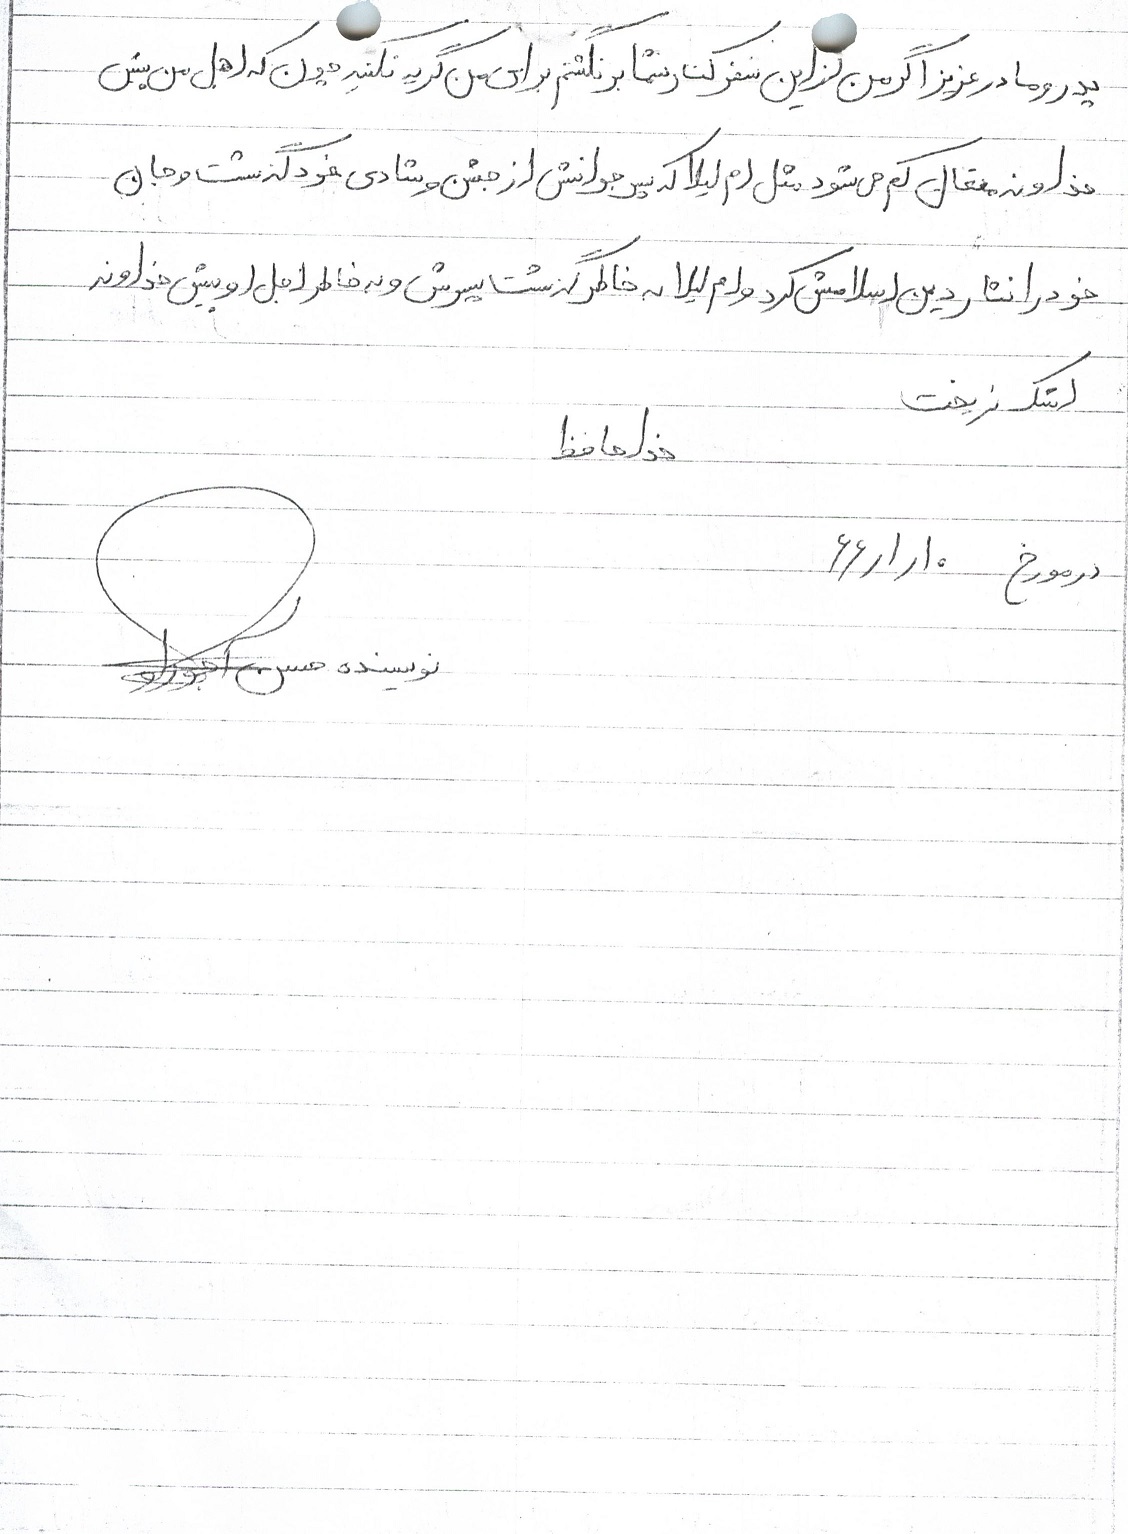 پدر و مادر عزیز اگر من از این سفر کنار شما بر نگشتم برای من گریه نکنید چون که اجل من پیش
خداوند متعال کم می شود مثل ام لیلا که پسر جوانش از جشن و شادی خود گذشت و جان
خود را نثار دین اسلامش کرد و ام لیلا به خاطر گذشت پسرش و به خاطر اجل او پیش خداوند
اشک نریخت
خداحافظ
در مورخ ۱۰ر۱ر۶۶
نویسنده حسن